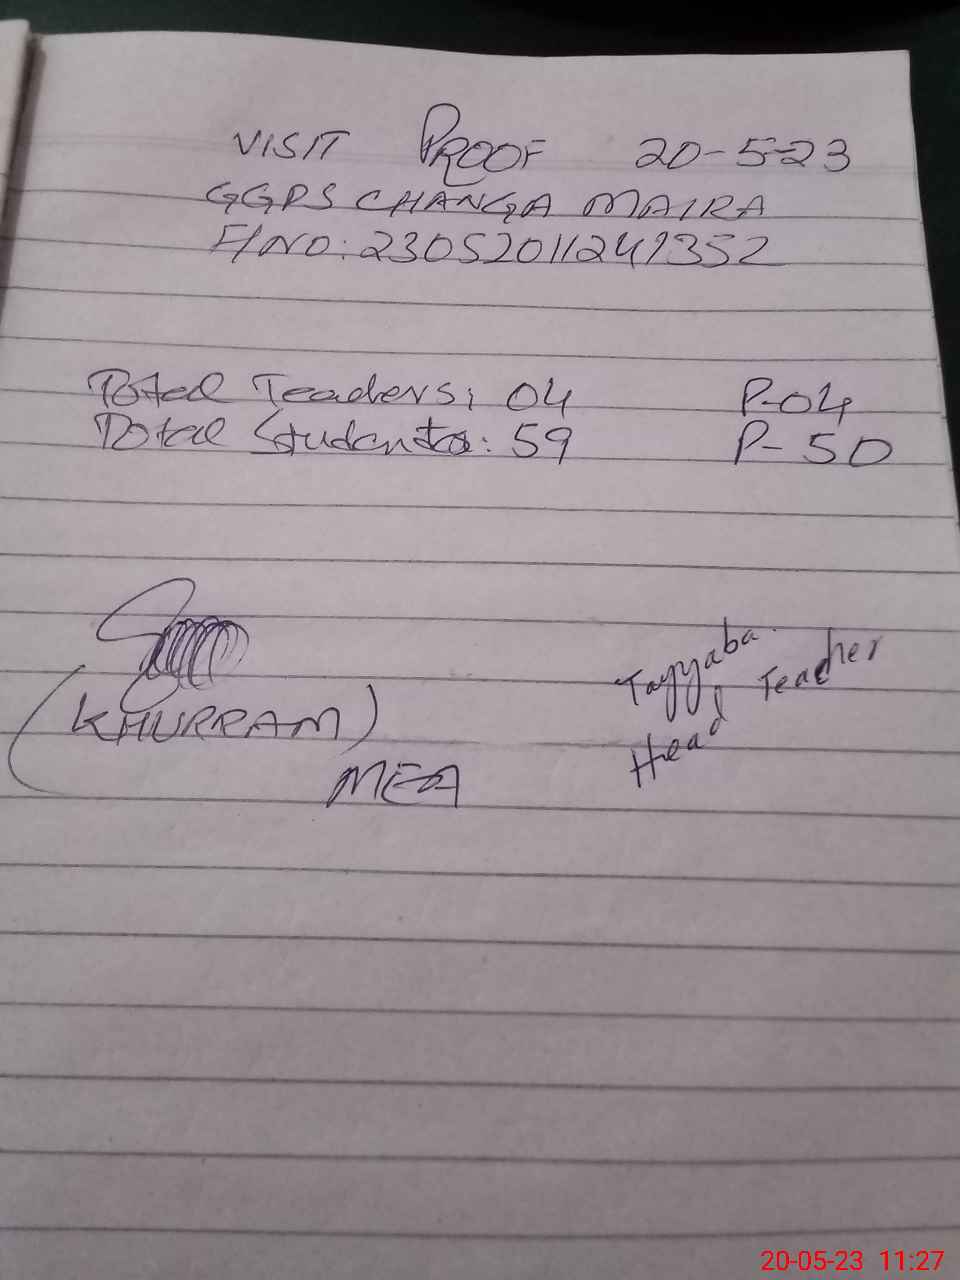 VISIT PROOF 20-5-23
GGPS CHANGA MAIRA
F/NO: 23052011241352
Total Teachers: 04 P-04
Total Students: 59 P-50
(KHURRAM)
MEA
Tayyaba
Head Teacher
20-05-23 11:27